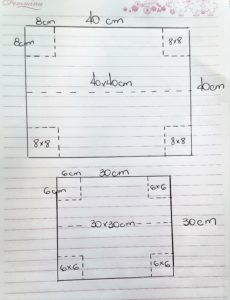 Feminina
8cm 40 cm
8cm 8x8
40x40cm 40cm
8x8 8x8
6cm 30cm
6cm 6x6
30x30cm 30cm
6x6 6x6